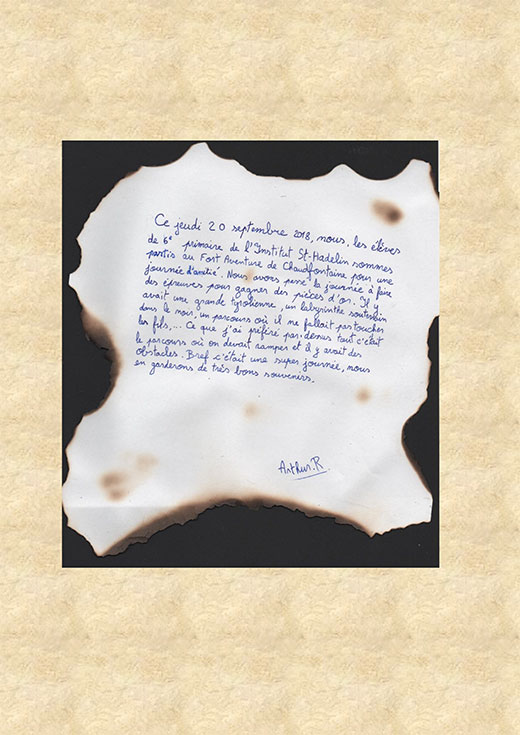 Ce jeudi 20 septembre 2018, nous, les élèves
de 6e primaire de l'Institut St-Hadelin sommes
partis au Fort Aventure de Chaudfontaine pour une
journée d'amitié. Nous avons passé la journée à faire
des épreuves pour gagner des pièces d'or. Il y
avait une grande tyrolienne, un labyrinthe souterrain
dans le noir, un parcours où il ne fallait pas toucher
les fils,... Ce que j'ai préféré par-dessus tout c'était
le parcours où on devait ramper et il y avait des
obstacles. Bref c'était une super journée, nous
en garderons de très bons souvenirs.
Arthur.R